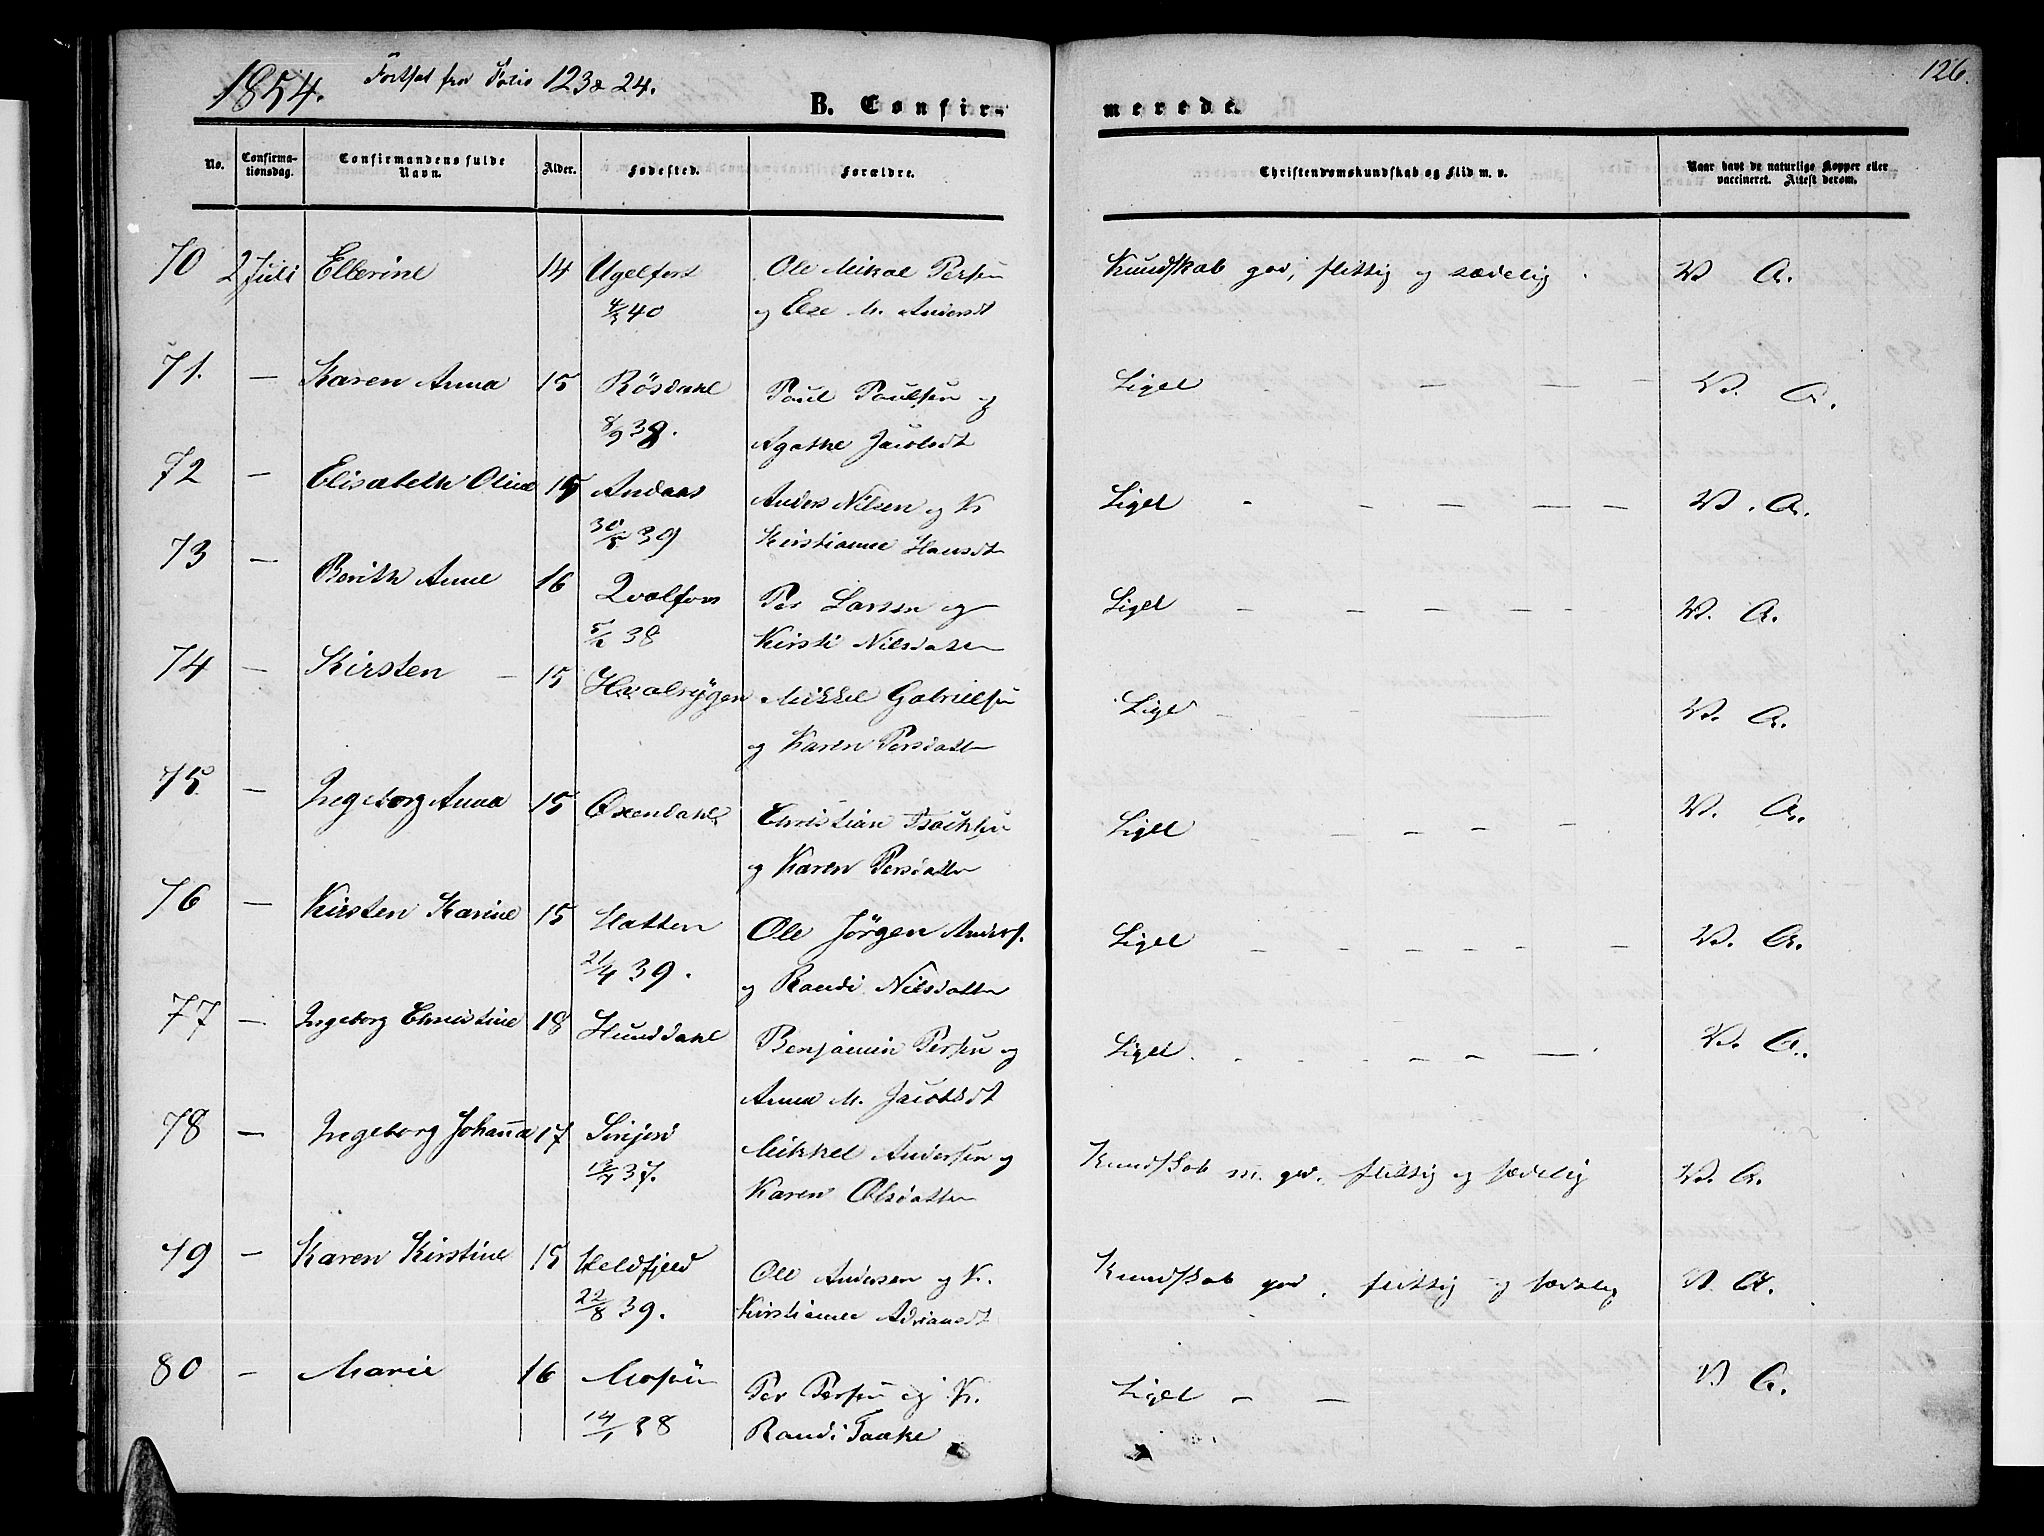 1854. Fortsat fra Folio 123 & 24.
126.
B. Confirmerede.
No. Confirmationsdag. Confirmandens fulde Navn. Alder. Fødested. Forældre. Christendomskundskab og Flid m. v. Naar havt de naturlige Kopper eller vaccineret. Attest derom.
70 2 Juli Ellerine 14 Ugelfors Ole Mikal Persen Kundskab god, flittig og sædelig. V A.
4/3 40 og Else M. Andersdt
71. — Karen Anna 15 Røsdahl Paul Paulsen og Ligel — — — V. A.
8/9 38. Agathe Jacobsdt
72 — Elisabeth Oline 15 Andaas Anders Nilsen og K Ligel — — — — — V. A.
30/5 39 Kirstianne Hansdt
73 — Berith Anne 16 Qvalfors Per Larsen og Ligel — — — — — V. A.
38 Kirsti Nilsdatter
74 — Kirsten — 15 Hvalrygen Mikkel Gabrielsen Ligel — — — V. A.
og Karen Persdatter
75 — Ingeborg Anna 15 Oxendahl Christian Isaksen Ligel — — — — — V. A.
og Karen Persdatter
76 — Kirsten Karine 15 Hatten Ole Jørgen Anders. Ligel — — — — — — V. A.
21/4 39. og Randi Nilsdatter
77 — Ingeborg Christine 18 Hunddahl Benjamin Persen og Ligel. — — — — — V. A.
Anna M. Jacobsdt
78 — Ingeborg Johanna 17 Mikkel Andersen og Kundskab m. god. flittig og sædelig V. A.
37. Karen Olsdatter
79 — Karen Kirstine 15 Heldfjeld Ole Andersen og K. Kundskab god. flittig og sædelig V. A.
22/8 39. Kirstianne Adriansdt
80 — Marie 16 Mosjøen Per Persen og K. Ligel — — V A.
14/1 38 Randi Taake